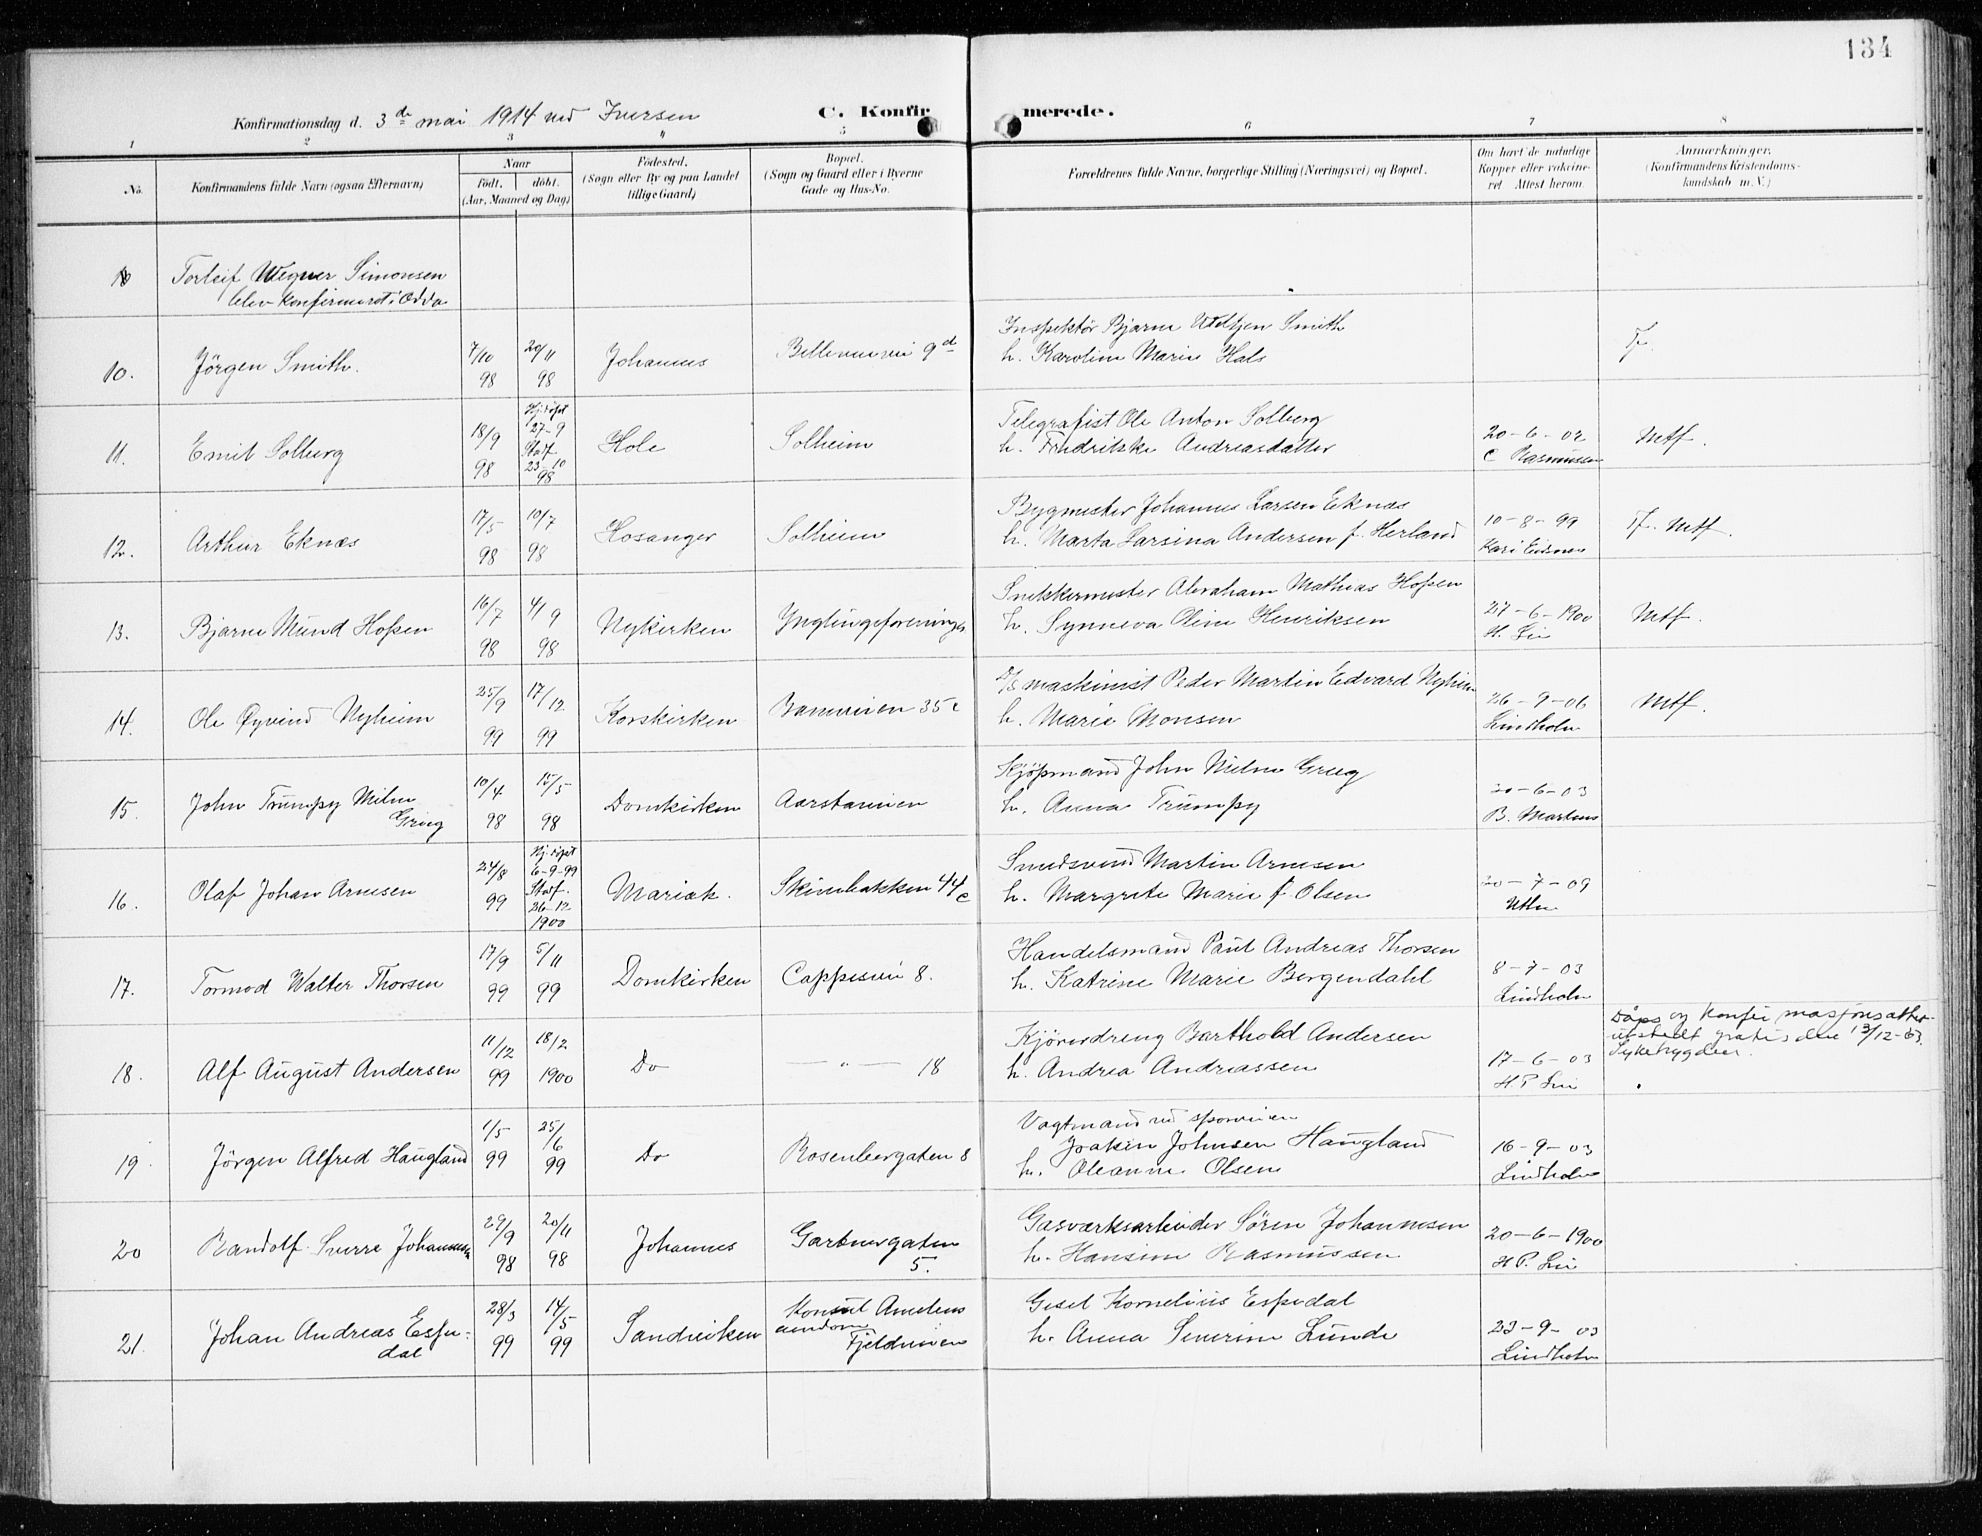 134
Konfirmationsdag d. 3de mai 1914 ved Iversen
C. Konfirmerede.
1 2 3 4 5 6 7 8
No. Konfirmandens fulde Navn (ogsaa Efternavn)
Naar
født. døbt.
(Aar, Maaned og Dag)
Fødested.
(Sogn eller By og paa Landet
tillige Gaard)
Bopæl.
(Sogn og Gaard eller i Byerne
Gade og Hus-No.
Forældrenes fulde Navne, borgerlige Stilling (Næringsvei) og Bopæl.
Om havt de naturlige
Kopper eller vakcine-
ret Attest herom.
Anmærkninger.
(Konfirmandens Kristendoms-
kundskab m. V.)
Torleif Wegner Simonsen
blev konfirmeret i Odda
10. Jörgen Smith. 7/10 98 20/11 98 Johannes
Inspektör Bjarne Smith
h. Karoline Marie Hals
Tf.
11. Emil Solberg 18/9 98 Hj. döpt 27-9 Stadf. 23-10 98 Hole Solheim
Telegrafist Ole Anton Solberg
h. Fredrikke Andreasdatter
20-6-02
C Rasmussen
Mtf.
12. Arthur Eknæs 17/5 98 10/7 98 Hosanger Solheim
Bygmester Johannes Larsen Eknæs
h. Marta Larsina Andersen f. Herland
10-8-99
Tf. Mtf.
13. Bjarne Mund Hopen 16/7 98 4/9 98 Nykirken Ynglingeforeningen
Snekkermester Abraham Mathias Hopen
h. Synneva Oline Henriksen
27-6-1900
H. Lie
Mtf.
14. Ole Öyvind Nyheim 25/9 99 17/12 99 Korskirken 35c
D/S maskinist Peder Martin Edvard Nyheim
h. Marie Monsen
26-9-06
Lindholm
Mtf.
15. John Trumpy Milne
Grieg
10/4 98 15/5 98 Domkirken Aarstaveien
Kjöpmand John Milne Grieg
h. Anna Trumpy
20-6-03
B. Martens
16. Olaf Johan Arnesen 24/8 99 Hj. döpt 6-9-99 Stadf. 26-12 1900 Mariak. Skivebakken 44c
Smedsvend Martin Arnesen
h. Margrete Marie f. Olsen
20-7-09
17. Tormod Walter Thorsen 17/9 99 5/11 99 Domkirken Cappesvei 8.
Handelsmand Paul Andreas Thorsen
h. Katrine Marie Bergendahl
8-7-03
Lindholm
18. Alf August Andersen 11/12 99 18/2 1900 Do — " — 18
Kjöredreng Barthold Andersen
h. Andrea Andreassen
17-6-03
H. P. Lie
Dåps og Konfirmasjonsattest
utstedt gratis den 13/12-63.
Syketrygden.
19. Jörgen Alfred Haugland 1/5 99 25/6 99 Do Rosenbergaten 8
Vagtmand ved sporveien
Joakim Johnsen Haugland
h. Oleanne Olsen
16-9-03
Lindholm
20 Randolf Sverre Johannesen 29/9 98 20/11 98 Johannes Gartnergaten
5.
Gasværksarbeider Sören Johannesen
h. Hansine Rasmussen
20-6-1900
H P. Lie
21. Johan Andreas Espe-
dal
28/3 99 14/5 99 Sandviken Konsul Amelns
eiendom
Fjeldveien
Gesel Kornelius Espedal
h. Anna Severine Lunde
23-9-03
Lindholm